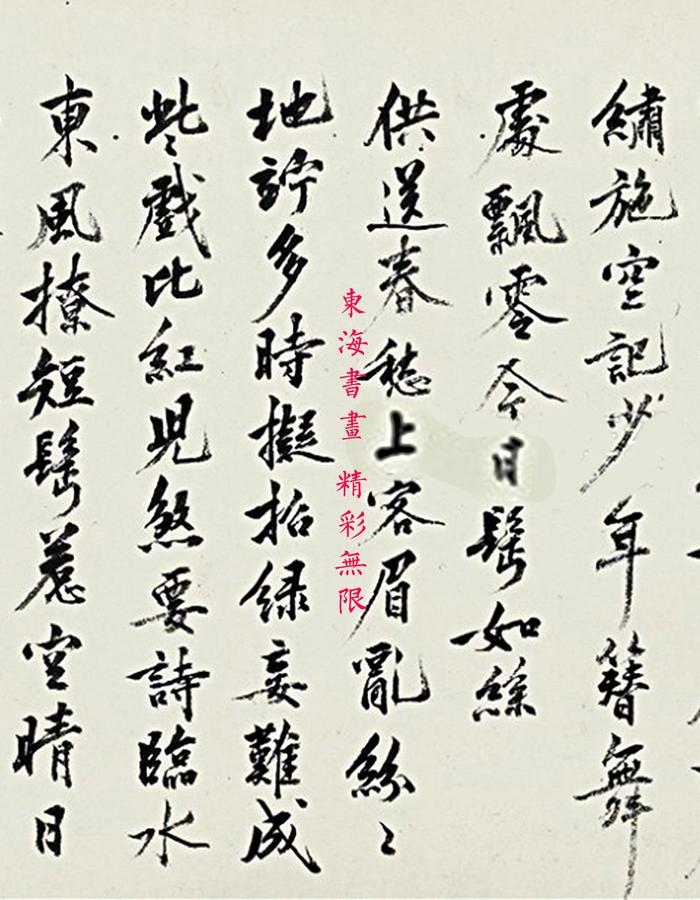 繡施空記少年簪舞
處飄零今日鬢如絲
供送春愁上客眉亂紛〻
地詝多時擬招綠妾難成
些戲比紅兒煞要詩臨水
東風撩短鬢惹空晴日
東海書畫 精彩無限